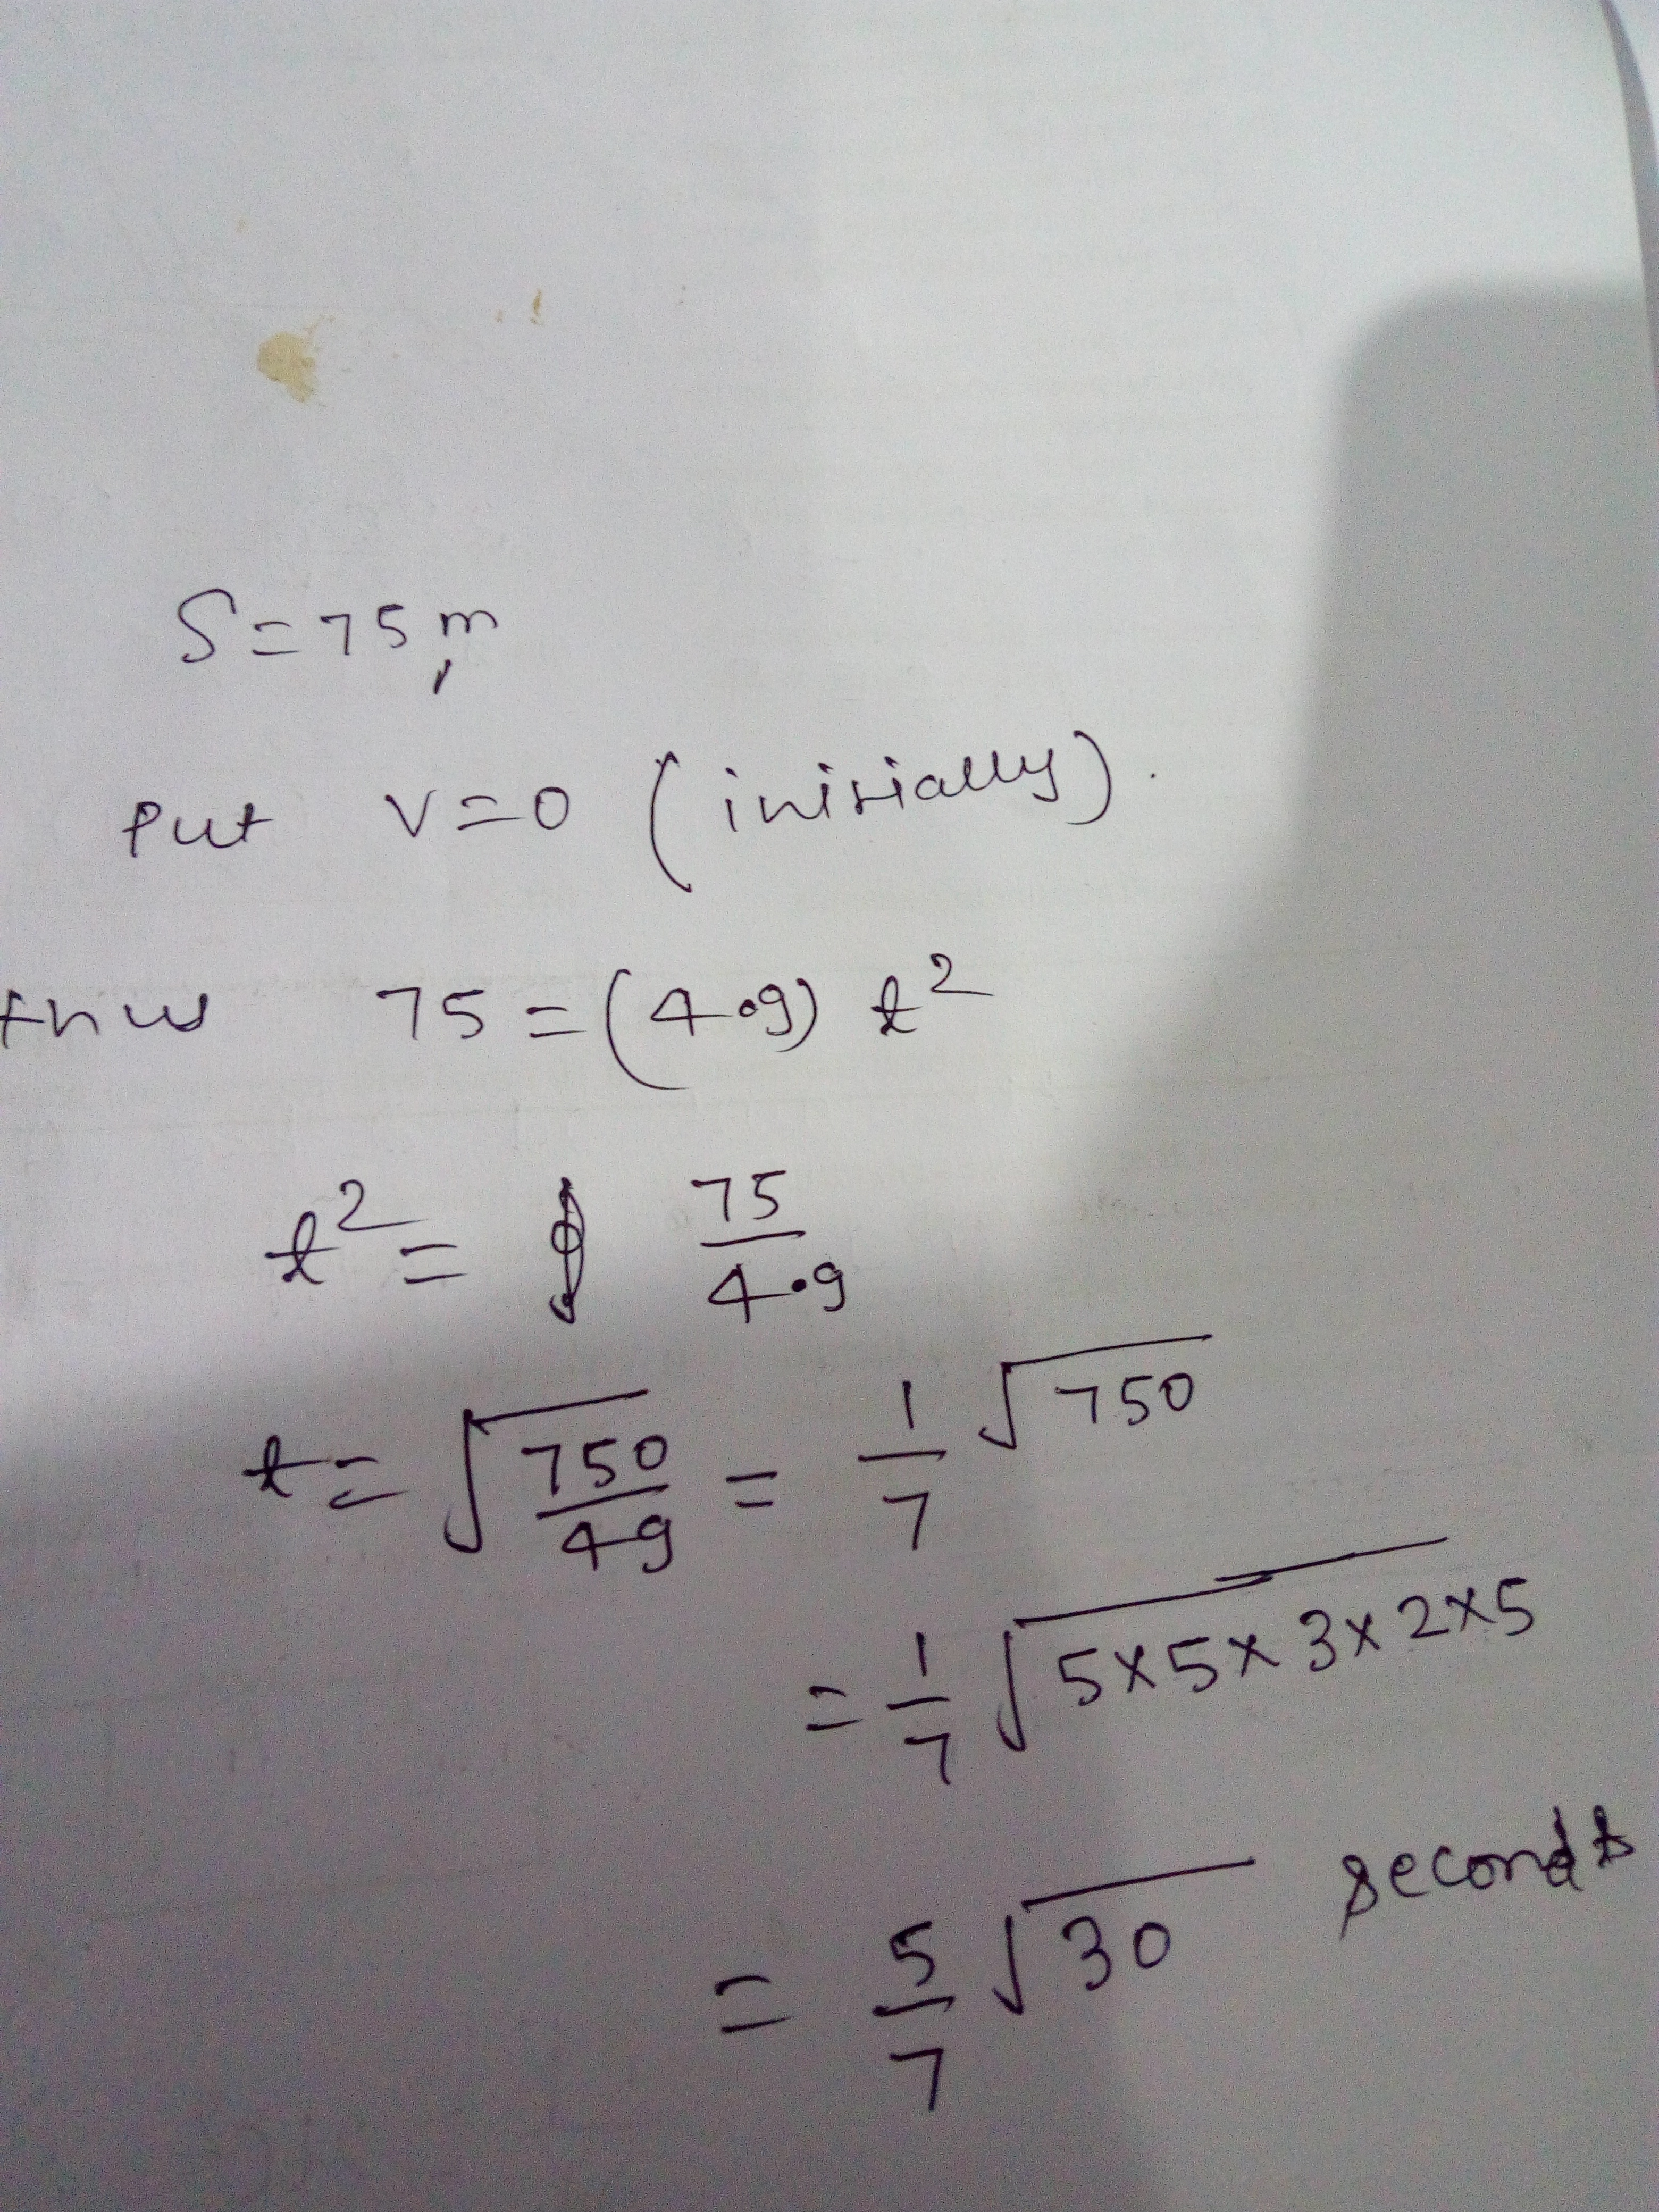 S=75m,
Put v=0 (initially).
thus 75=(4.9) t²
t²= 75/4.9
t= √(750/49) = 1/7 √750
= 1/7 √(5×5×3×2×5)
= 5/7 √30 seconds